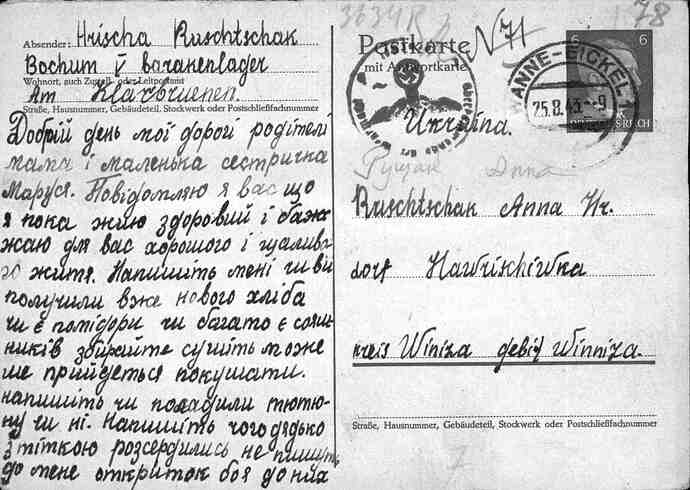 3634R
N71
78
Absender: Hrischa Ruschtschak
Bochum V baranenlager
Wohnort, auch Zustell- oder Leitpostamt
Am Klarbruenen
Straße, Hausnummer, Gebäudeteil, Stockwerk oder Postschließfachnummer
Добрій день мої дорогі родітелі
мама і маленька сестричка
Маруся. Повідомляю я вас що
я пока живу здоровий і баж
жаю для вас хорошого і щаслив
го житя. Напишіть мені чи ви
получили вже нового хліба
чи є помідори чи багато є соняш
ників збірайте сушіть може
ще прийдеться покушати.
напишіть чи посадили тютю-
ну чи ні. Напишіть чого дядько
з тіткою розсердились не пишуть
до мене откриток бо я до них
Postkarte
mit Antwortkarte
WANNE-EICKEL 1
25.8.43.-9
6 6
DEUTSCHES REICH
Ukraina.
Рущак Anna
Ruschtschak Anna Hr.
dorf Hawrischiwka
kreis Winiza gebit Winniza.
Straße, Hausnummer, Gebäudeteil, Stockwerk oder Postschließfachnummer
7